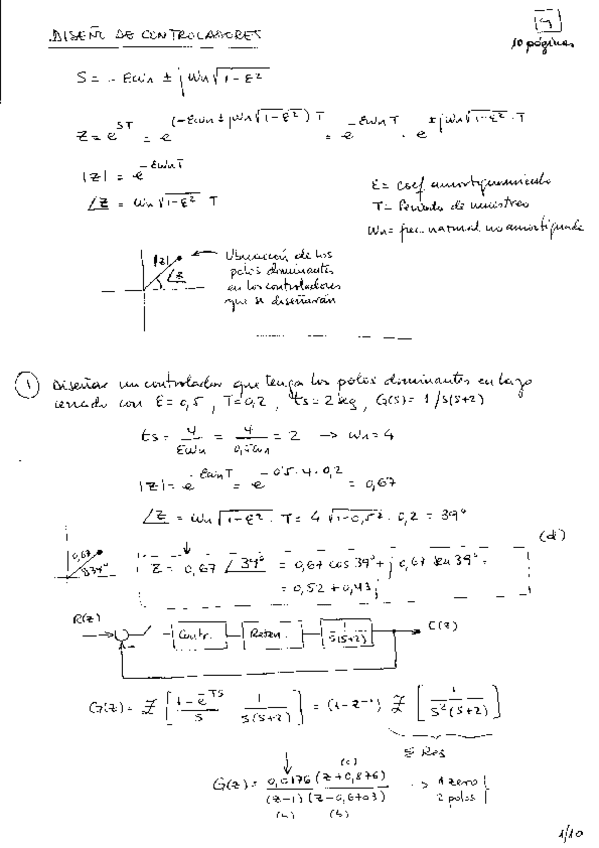 DISEÑO DE CONTROLADORES
4
10 páginas
S = - εωn ± j ωn √1-ε²
Z = e^{ST} = e^{(-εωn ± jωn√1-ε²) T} = e^{-εωnT} · e^{±jωn√1-ε² · T}
|Z| = e^{-εωnT}
∠Z = ωn √1-ε² T
ε = coef. amortiguamiento
T = Periodo de muestreo
ωn = frec. natural no amortiguada
|Z| ∠Z
Ubicación de los
polos dominantes
en los controladores
que se diseñarán
① Diseñar un controlador que tenga los polos dominantes en lazo
cerrado con ε = 0,5 , T = 0,2 , ts = 2 seg , G(s) = 1/s(s+2)
ts = 4/εωn = 4/0,5ωn = 2 → ωn = 4
|Z| = e^{-εωnT} = e^{-0,5·4·0,2} = 0,67
∠Z = ωn √1-ε² · T = 4 √1-0,5² · 0,2 = 39°
(d)
0,67 39°
Z = 0,67 ∠39° = 0,67 cos 39° + j 0,67 sen 39° =
= 0,52 + 0,43j
R(z) Contr. Reten. 1/s(s+2) C(z)
G(z) = Z [ 1-e^{-TS}/s 1/s(s+2) ] = (1-z⁻¹) Z [ 1/s²(s+2) ]
Σ Res
G(z) = 0,0176 (z+0,876) / (z-1) (z-0,6703) → 1 zero
2 polos
(c)
(a) (b)
1/10